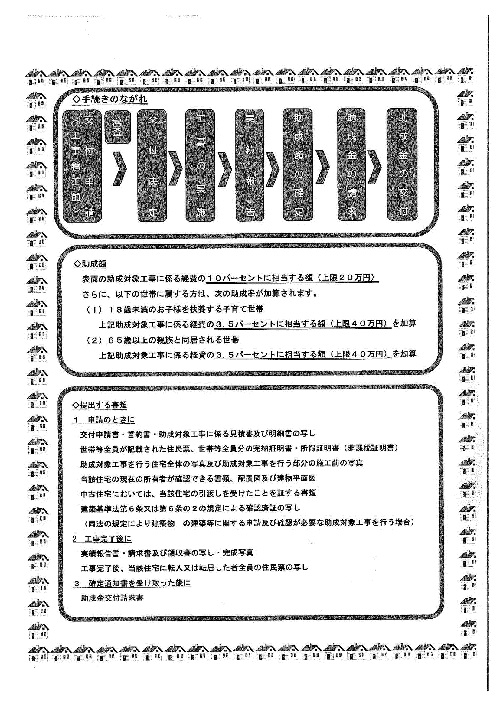 ◇手続きのながれ
◇助成額
表面の助成対象工事に係る経費の10パーセントに相当する額（上限20万円）
さらに、以下の世帯に属する方は、次の助成率が加算されます。
（1）18歳未満のお子様を扶養する子育て世帯
上記助成対象工事に係る経費の3.5パーセントに相当する額（上限40万円）を加算
（2）65歳以上の親族と同居される世帯
上記助成対象工事に係る経費の3.5パーセントに相当する額（上限40万円）を加算
◇提出する書類
1 申請のときに
交付申請書・誓約書・助成対象工事に係る見積書及び明細書の写し
世帯等全員が記載された住民票、世帯等全員分の完納証明書・所得証明書（非課税証明書）
助成対象工事を行う住宅全体の写真及び助成対象工事を行う部分の施工前の写真
当該住宅の現在の所有者が確認できる書類、配置図及び建物平面図
中古住宅においては、当該住宅の引渡しを受けたことを証する書書
建築基準法第6条又は第6条の2の規定による確認済証の写し
（同法の規定により建築物 の建築等に関する申請及び確認が必要な助成対象工事を行う場合）
2 工事完了後に
実績報告書・請求書及び領収書の写し・完成写真
工事完了後、当該住宅に転入又は転居した者全員の住民票の写し
3 確定通知書を受け取った後に
助成金交付請求書